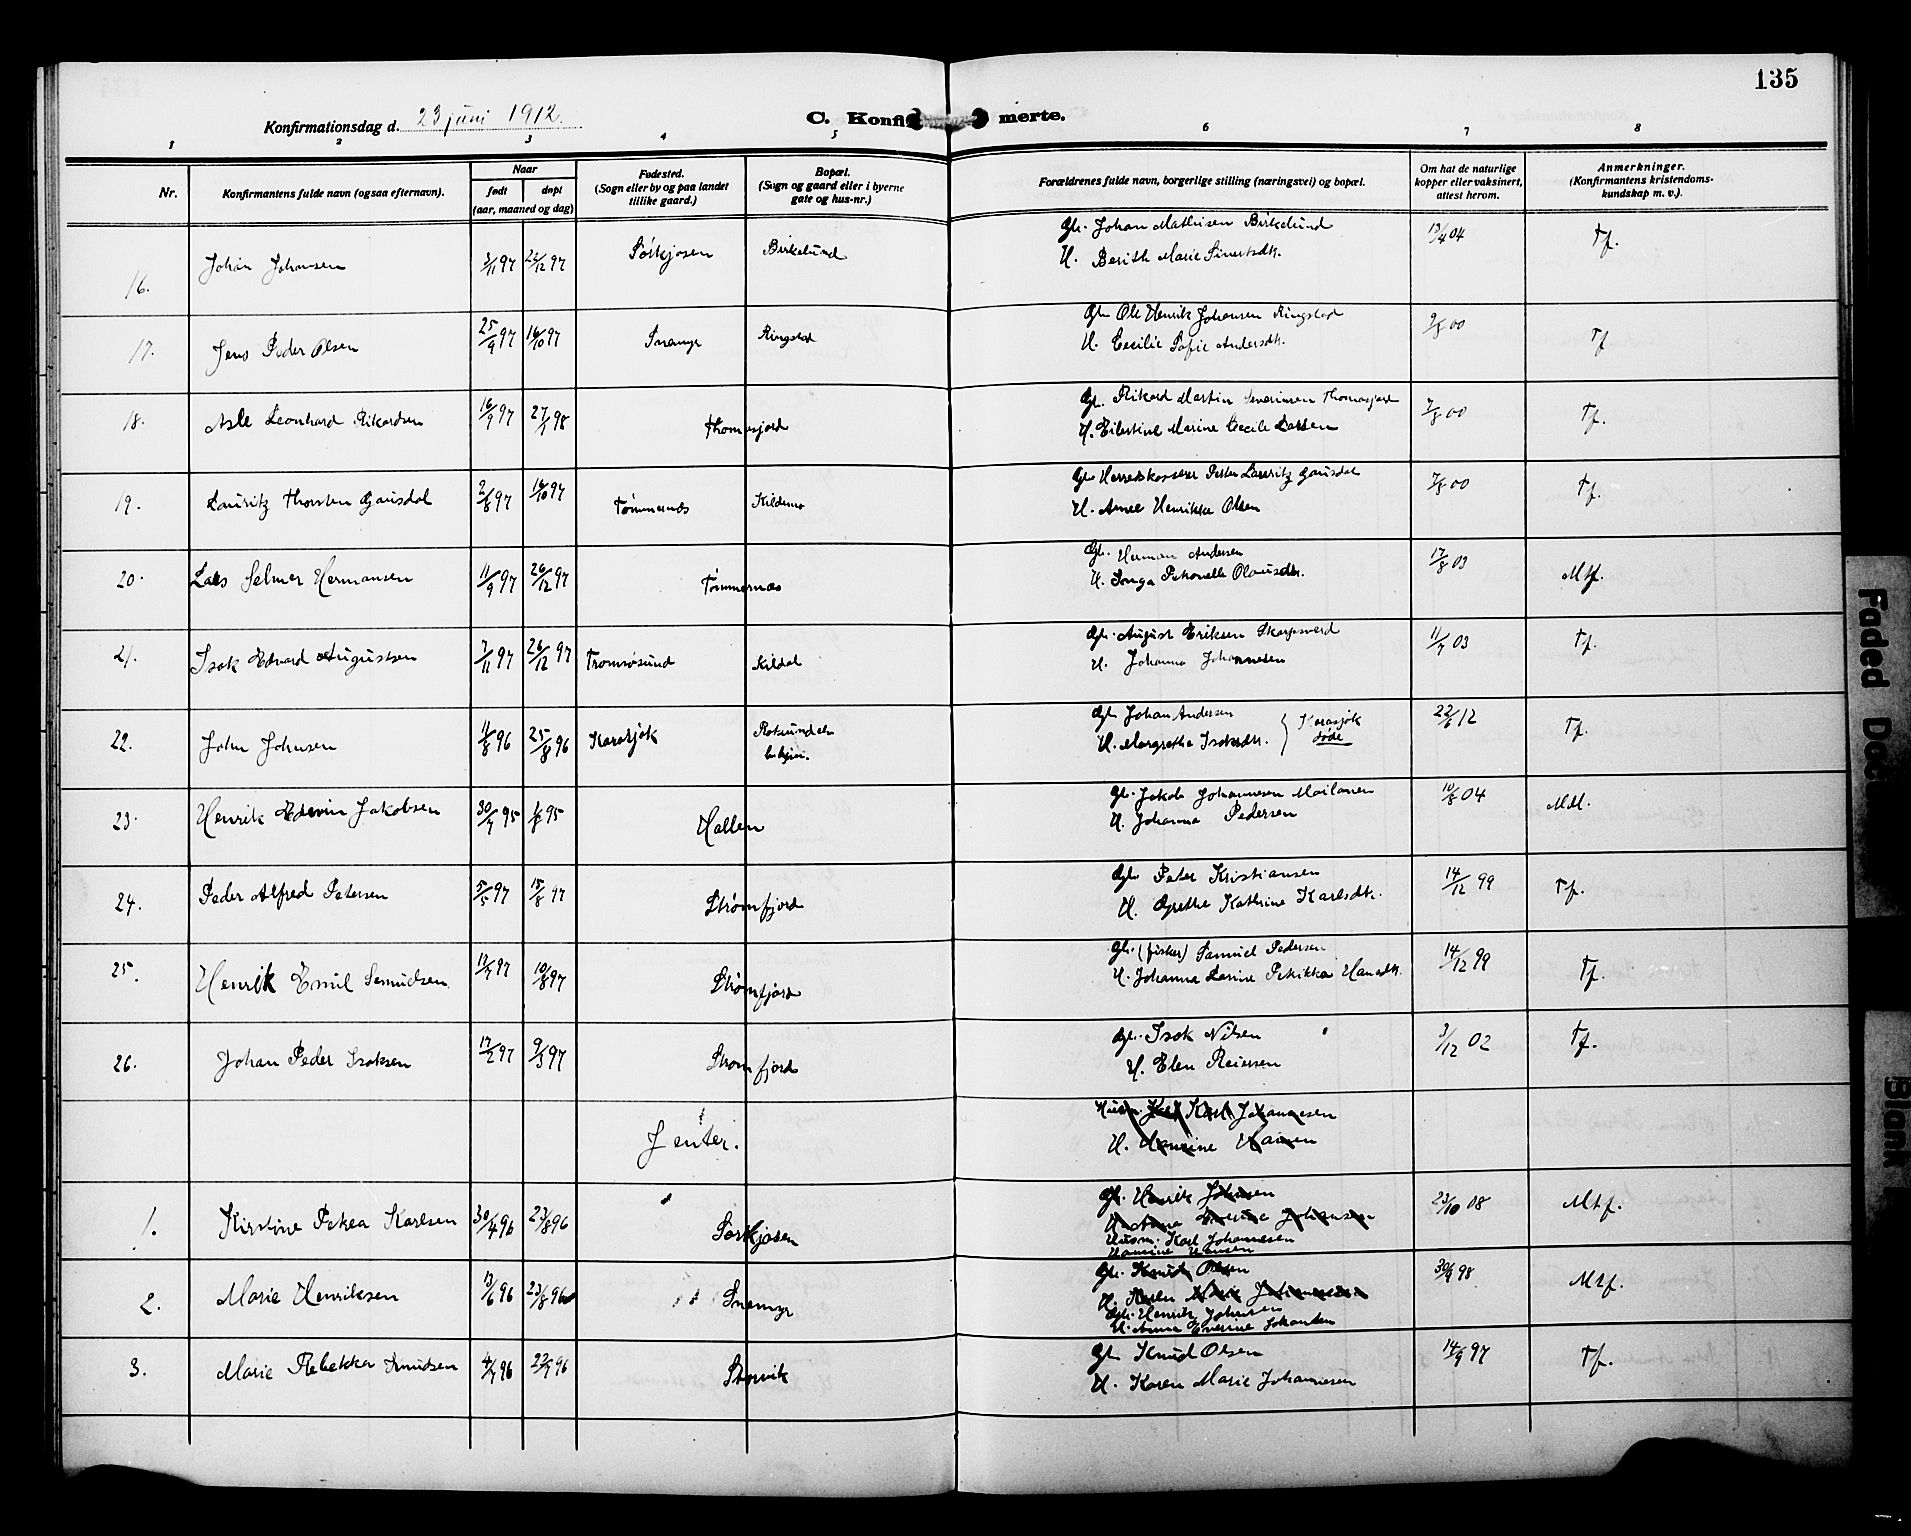 135
Konfirmationsdag d. 23 juni 1912.
C. Konfi merte.
1 2 3 4 5 6 7 8
Nr.
Konfirmantens fulde navn (ogsaa efternavn).
Naar
født døpt
(aar, maaned og dag)
Fødested.
(Sogn eller by og paa landet
tillike gaard.)
Bopæl.
(Sogn og gaard eller i byerne
gate og hus-nr.)
Forældrenes fulde navn, borgerlige stilling (næringsvei) og bopæl.
Om hat de naturlige
kopper eller vaksinert,
attest herom.
Anmerkninger.
(Konfirmantens kristendoms-
kundskap m. v.).
16. Johan Johansen 3/11 97 22/12 97 Sørkjosen Birkelund
Gb. Johan Mathisen Birkelund 13/4 04 Tf.
H. Berith Marie Sivertsdtr.
17. Jens Peder Olsen 25/9 97 16/10 97 Snemyr Ringstad
Gb. Ole Henrik Johansen Ringstad 9/8 00 Tf.
H. Cecilie Sofie Andersdtr.
18. Asle Leonhard Rikardsen 16/9 97 27/ 98 Thomasjord
Gb. Rikard Martin Severinsen Thomasjord 7/8 00 Tf.
H. Marine Cecile Larsen
19. Lauritz Thorsten Gausdal 2/8 97 16/10 97 Tømmernes Kildemo
Gb. Herredskasserer Peter Lauritz Gausdal 7/8 00 Tf.
H. Anne Henrikke Olsen
20. Lars Selmer Hermansen 11/9 97 26/12 97 Tømmernes
Gb. Herman Andersen 17/8 03 Mtf.
H. Inga Petronelle Olausdtr.
21. Isak Edvard Augustsen 7/11 97 26/12 97 Tromsøsund Kildal
Gb. August Eriksen Skarpsverd 11/7 03 Tf.
H. Johanna Johannesen
22. John Johnsen 11/8 96 25/8 96 Karasjok Rotsundelv
Gb. Johan Andersen } Karasjok 22/6 12 Tf.
H. Margrethe Isaksdtr. døde
23. Henrik Edevin Jakobsen 30/7 95 /8 95 Hallen
Gb. Jakob Johannesen Mailanen 10/8 04 MM.
H. Johanna Pedersen
24. Peder Alfred Petersen 5/5 97 15/8 97 Strømfjord
Gb. Peter Kristiansen 14/12 99 Tf.
H. Grethe Kathrine Karlsdtr.
25. Henrik Emil Samuelsen 17/7 97 10/8 97 Strømfjord
Gb. (fisker) Samuel Pedersen 14/12 99 Tf.
H. Johanna Lovise Petrikka Hansdtr.
26. Johan Peder Isaksen 17/2 97 9/3 97 Strømfjord
Gb. Isak Nilsen 3/12 02 Tf.
H. Elen Reiersen
Jenter.
Husm. Karl Johannesen
H. Hansine Hansen
1. Kirstine Petrea Karlsen 30/4 96 23/8 96 Sørkjosen
Gb. Henrik Johansen 23/10 08 Mtf.
H. Anna Everine Johansen
Husm. Karl Johannesen
Hansine Hansen
2. Marie Henriksen 13/6 96 23/8 96 Snemyr
Gb. Knud Olsen 30/9 98 Mtf.
H. Karen Marie Johannesen
Gb. Henrik Johansen
H. Anna Everine Johansen
3. Marie Rebekka Knudsen 4/7 96 27/9 96 Storvik
Gb. Knud Olsen 14/9 97 Tf.
H. Karen Marie Johannesen
Faded Do
Blank